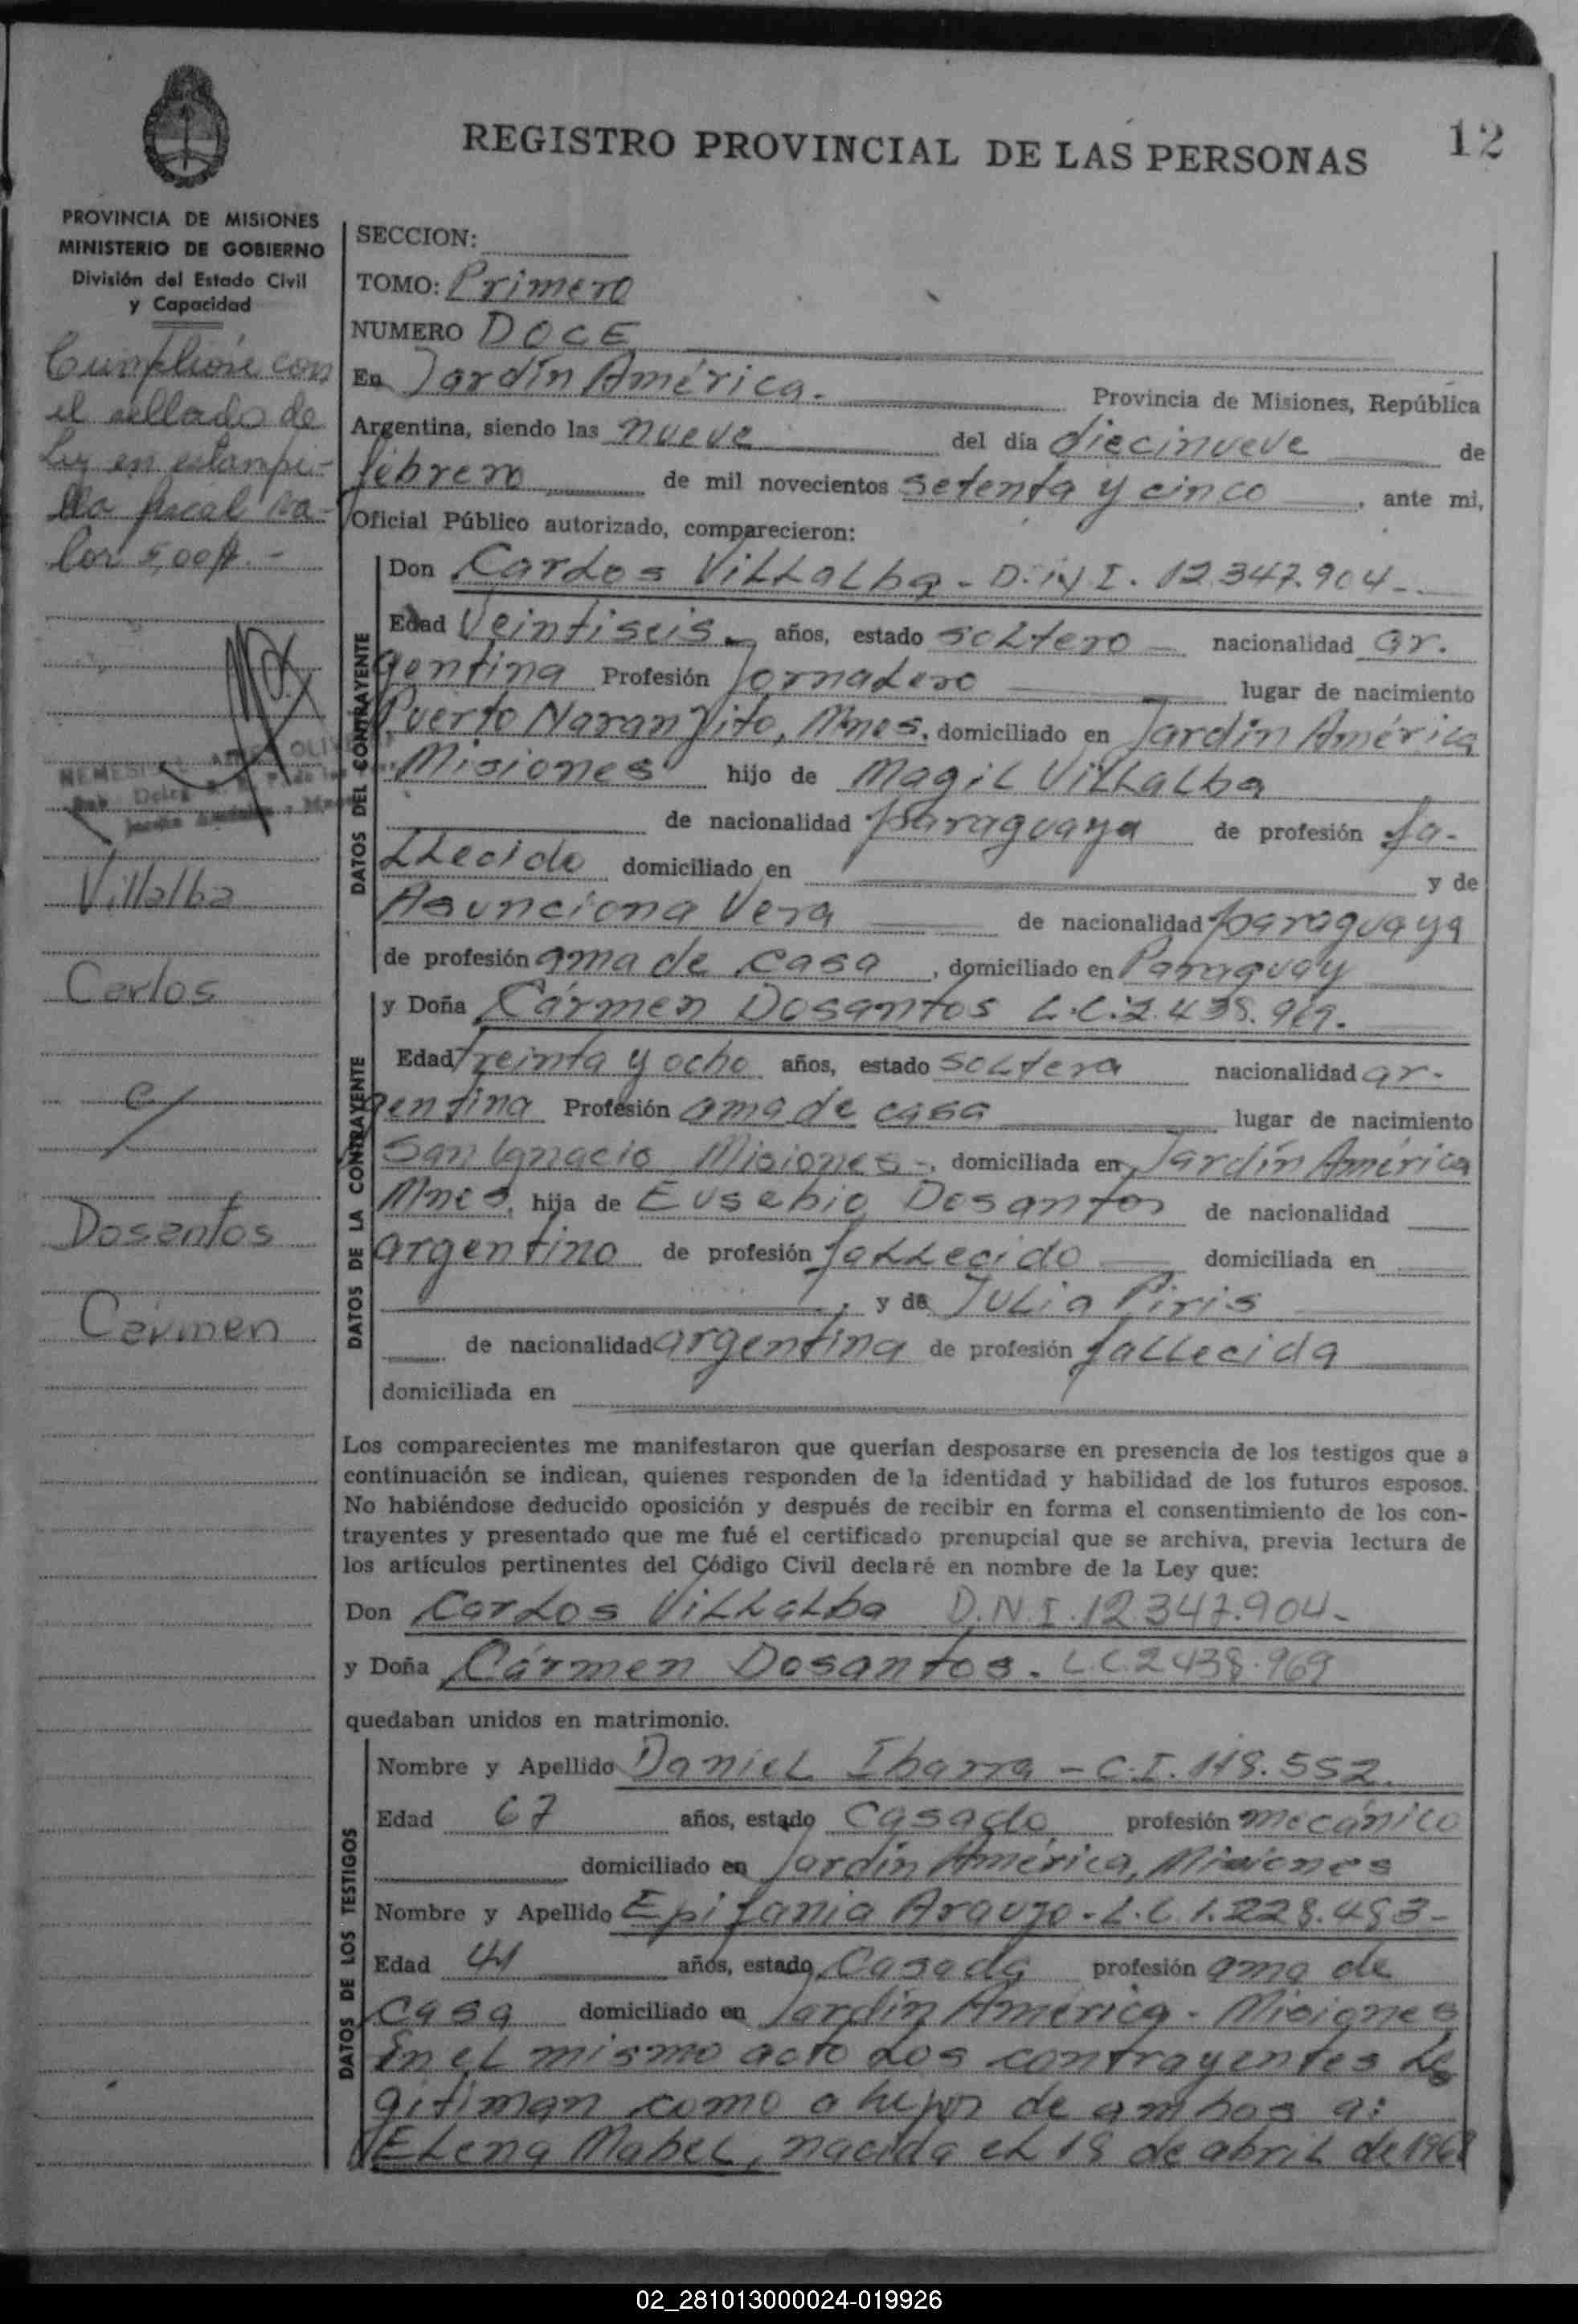 REGISTRO PROVINCIAL DE LAS PERSONAS
12
PROVINCIA DE MISIONES
MINISTERIO DE GOBIERNO
División del Estado Civil
y Capacidad
Cumplióse con
el sellado de
Ley en estampi-
lla fiscal va-
lor 5,00$.-
Villalba
Carlos
c/
Dosantos
Cármen
SECCION:
TOMO: Primero
NUMERO DOCE
En Jardín América. Provincia de Misiones, República
Argentina, siendo las nueve del día diecinueve de
febrero de mil novecientos setenta y cinco, ante mi,
Oficial Público autorizado, comparecieron:
DATOS DEL CONTRAYENTE
Don Carlos Villalba - D.N.I. 12.347.904-.
Edad Veintiseis años, estado soltero nacionalidad ar.
gentina Profesión Jornalero lugar de nacimiento
Puerto Naranjito, Mnes. domiciliado en Jardín América
Misiones hijo de Magil Villalba
de nacionalidad paraguaya de profesión fa-
llecido domiciliado en y de
Asunciona Vera de nacionalidad paraguaya
de profesión ama de casa, domiciliado en Paraguay
DATOS DE LA CONTRAYENTE
y Doña Cármen Dosantos L.C.2.438.969.
Edad Treinta y ocho años, estado soltera nacionalidad ar-
gentina Profesión ama de casa lugar de nacimiento
San Ignacio Misiones-, domiciliada en Jardín América
Mnes. hija de Eusebio Dosantos de nacionalidad
argentino de profesión fallecido domiciliada en
, y de Julia Piris
de nacionalidad argentina de profesión fallecida
domiciliada en
Los comparecientes me manifestaron que querían desposarse en presencia de los testigos que a
continuación se indican, quienes responden de la identidad y habilidad de los futuros esposos.
No habiéndose deducido oposición y después de recibir en forma el consentimiento de los con-
trayentes y presentado que me fué el certificado prenupcial que se archiva, previa lectura de
los artículos pertinentes del Código Civil declaré en nombre de la Ley que:
Don Carlos Villalba D.N.I.12.347.904-
y Doña Cármen Dosantos. L.C.2438.969
quedaban unidos en matrimonio.
DATOS DE LOS TESTIGOS
Nombre y Apellido Daniel Ibarra - C.I. 118.552.
Edad 67 años, estado casado profesión mecánico
domiciliado en Jardín América, Misiones
Nombre y Apellido Epifania Araujo - L.C 1.228.483-
Edad 41 años, estado Casada profesión ama de
casa domiciliado en Jardín América - Misiones
En el mismo acto los contrayentes le
gitiman como a hijos de ambos a:
Elena Mabel, nacida el 18 de abril de 1968
02_281013000024-019926